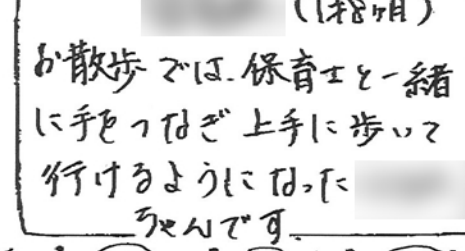 (1才8ヶ月)
お散歩では、保育士と一緒
に手をつなぎ上手に歩いて
行けるようになった
ちゃんです。